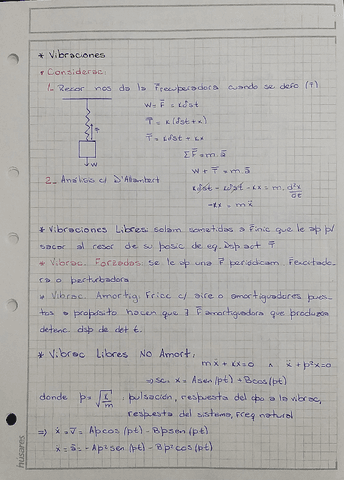 * Vibraciones
* Considerac.
1_ Resor nos da la F recuperadora cuando se defo (F)
W = F = kδst
T = k(δst + x)
T = kδst + kx
ΣF = m.a
W + T = m.a
2_ Análisis c/ D'Alambert
kδst - kδst - kx = m. d²x/dt
-kx = mẍ
W
* Vibraciones Libres: solam sometidas a F inic que le ap p/
sacar al resor de su posic de eq. Dsp act F
* Vibrac. Forzadas: se le ap una F periódicam. F excitado-
ra o perturbadora
* Vibrac. Amortig. Fricc c/ aire o amortiguadores pues-
tos a propósito hacen que ∃ F amortiguadora que produzca
detenc. dsp de det t.
* Vibrac Libres NO Amort:
mẍ + kx = 0 ∧ ẍ + p²x = 0
⇒ sc: x = Asen(pt) + Bcos(pt)
donde p = √k/m pulsación, respuesta del cpo a la vibrac,
respuesta del sistema, freq natural
⇒ ẋ = v = Apcos(pt) - Bpsen(pt)
ẍ = a = -Ap²sen(pt) - Bp²cos(pt)
husares